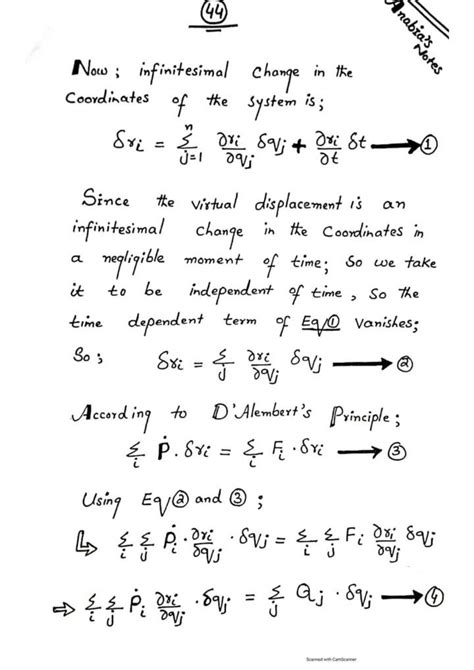 44
Anabia's
Notes
Now; infinitesimal change in the
Coordinates of the system is;
δri = Σ_{j=1}^{n} ∂ri/∂qj δqj + ∂ri/∂t δt → ①
Since the virtual displacement is an
infinitesimal change in the Coordinates in
a negligible moment of time; So we take
it to be independent of time, So the
time dependent term of Eq① Vanishes;
So; δri = Σ_j ∂ri/∂qj δqj → ②
According to D'Alembert's Principle;
Σ_i Ṗ · δri = Σ_i Fi · δri → ③
Using Eq② and ③;
↳ Σ_i Σ_j Ṗi · ∂ri/∂qj · δqj = Σ_i Σ_j Fi ∂ri/∂qj δqj
⇒ Σ_i Σ_j Ṗi ∂ri/∂qj · δqj = Σ_j Qj · δqj → ④
Scanned with CamScanner